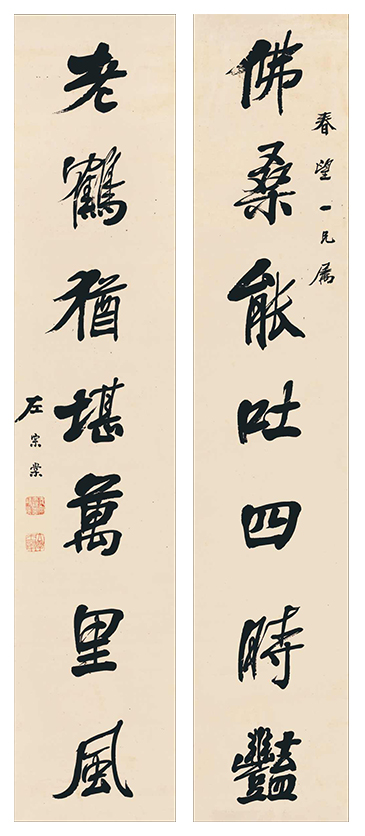 春望一兄属
佛桑能吐四時豔
老鶴猶堪萬里風
左宗棠